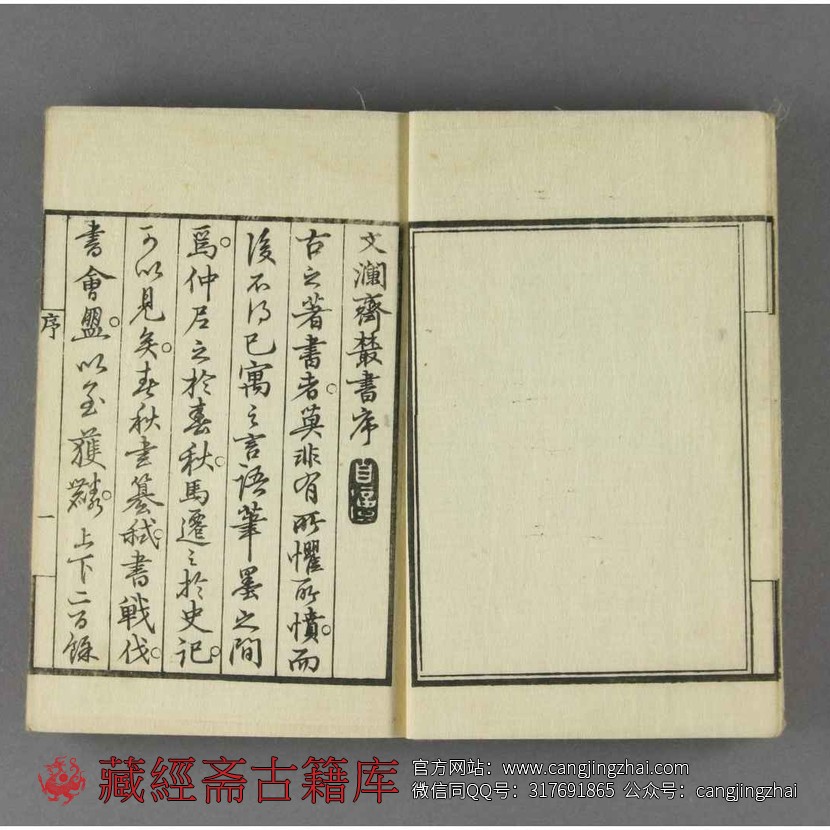 文瀾齋叢書序
古之著書者。莫非有所懼所憤。而
後不得已寓之言語筆墨之間
焉。仲尼之於春秋。馬遷之於史記。
可以見矣。春秋書簒弑。書戰伐。
書會盟。以至獲麟。上下二百餘
序
一
藏經斋古籍库
官方网站：www.cangjingzhai.com
微信同QQ号：317691865 公众号：cangjingzhai